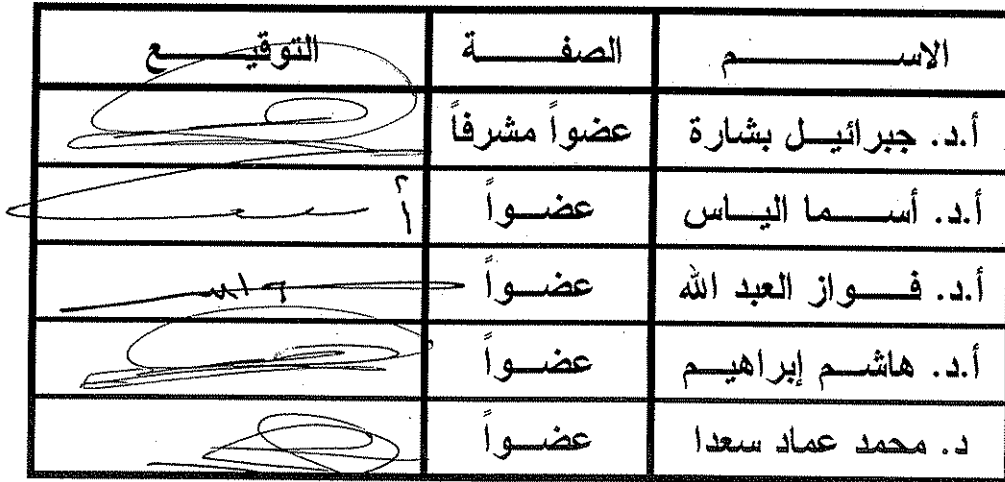 الاسم الصفة التوقيع
أ.د. جبرائيل بشارة عضواً مشرفاً
أ.د. أسما الياس عضواً
أ.د. فواز العبد الله عضواً
أ.د. هاشم إبراهيم عضواً
د. محمد عماد سعدا عضواً